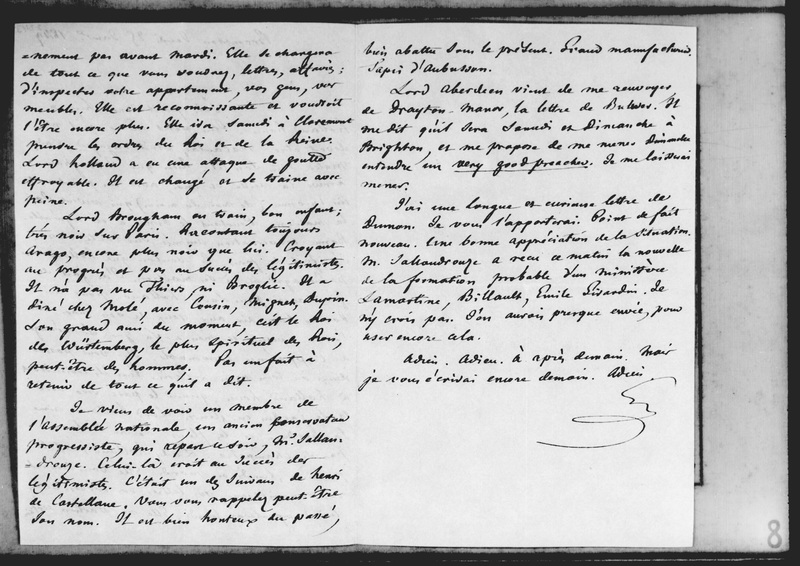 =nement pas avant mardi. Elle se chargera
de tout ce que vous voudrez, lettres, affaires;
d'inspecter votre appartement, vos gens, vos
meubles. Elle est reconnoissante et voudroit
l'être encore plus. Elle ira Samedi à Claremont
prendre les ordres du Roi et de la Reine.
Lord Holland a eu une attaque de goutte
effroyable. Il est changé et se traine avec
peine.
Lord Brougham en train, bon enfant;
très noir sur Paris. Racontant toujours
Arago, encore plus noir que lui. Croyant
au progrès et pas au succès des légitimistes.
Il n'a pas vu Thiers, ni Broglie. Il a
diné chez Molé, avec Cousin, Mignet, Dupin.
Son grand ami du moment, c'est le Roi
de Würtemberg, le plus spirituel des Rois,
peut-être des hommes. Pas un fait à
retenir de tout ce qu'il a dit.
Je viens de voir un membre de
l'Assemblée nationale, un ancien conservateur
progressiste, qui repart ce soir, Mr. Sallan-
=drouze. Celui-là croit au succès des
légitimistes. C'étoit un des suivans de henri
de Castellane. Vous vous rappelez peut-être
son nom. Il est bien honteux du passé,
bien abattu sous le présent. Grand manufacturier.
Tapis d'Aubusson.
Lord Aberdeen vient de me renvoyer
de Drayton-Manor, la lettre de Bulwer. Il
me dit qu'il sera Samedi et Dimanche à
Brighton, et me propose de me mener Dimanche
entendre un very good preacher. Je me laisserai
mener.
J'ai une longue et curieuse lettre de
Dumon. Je vous l'apporterai. Point de fait
nouveau. Une bonne appréciation de la situation.
M. Sallandrouze a reçu ce matin la nouvelle
de la formation probable d'un ministère
Lamartine, Billault, Emile Girardin. Je
n'y crois pas. J'en aurois presque envie, pour
user encore cela.
Adieu. Adieu. à après demain. Mais
je vous écrirai encore demain. Adieu
8